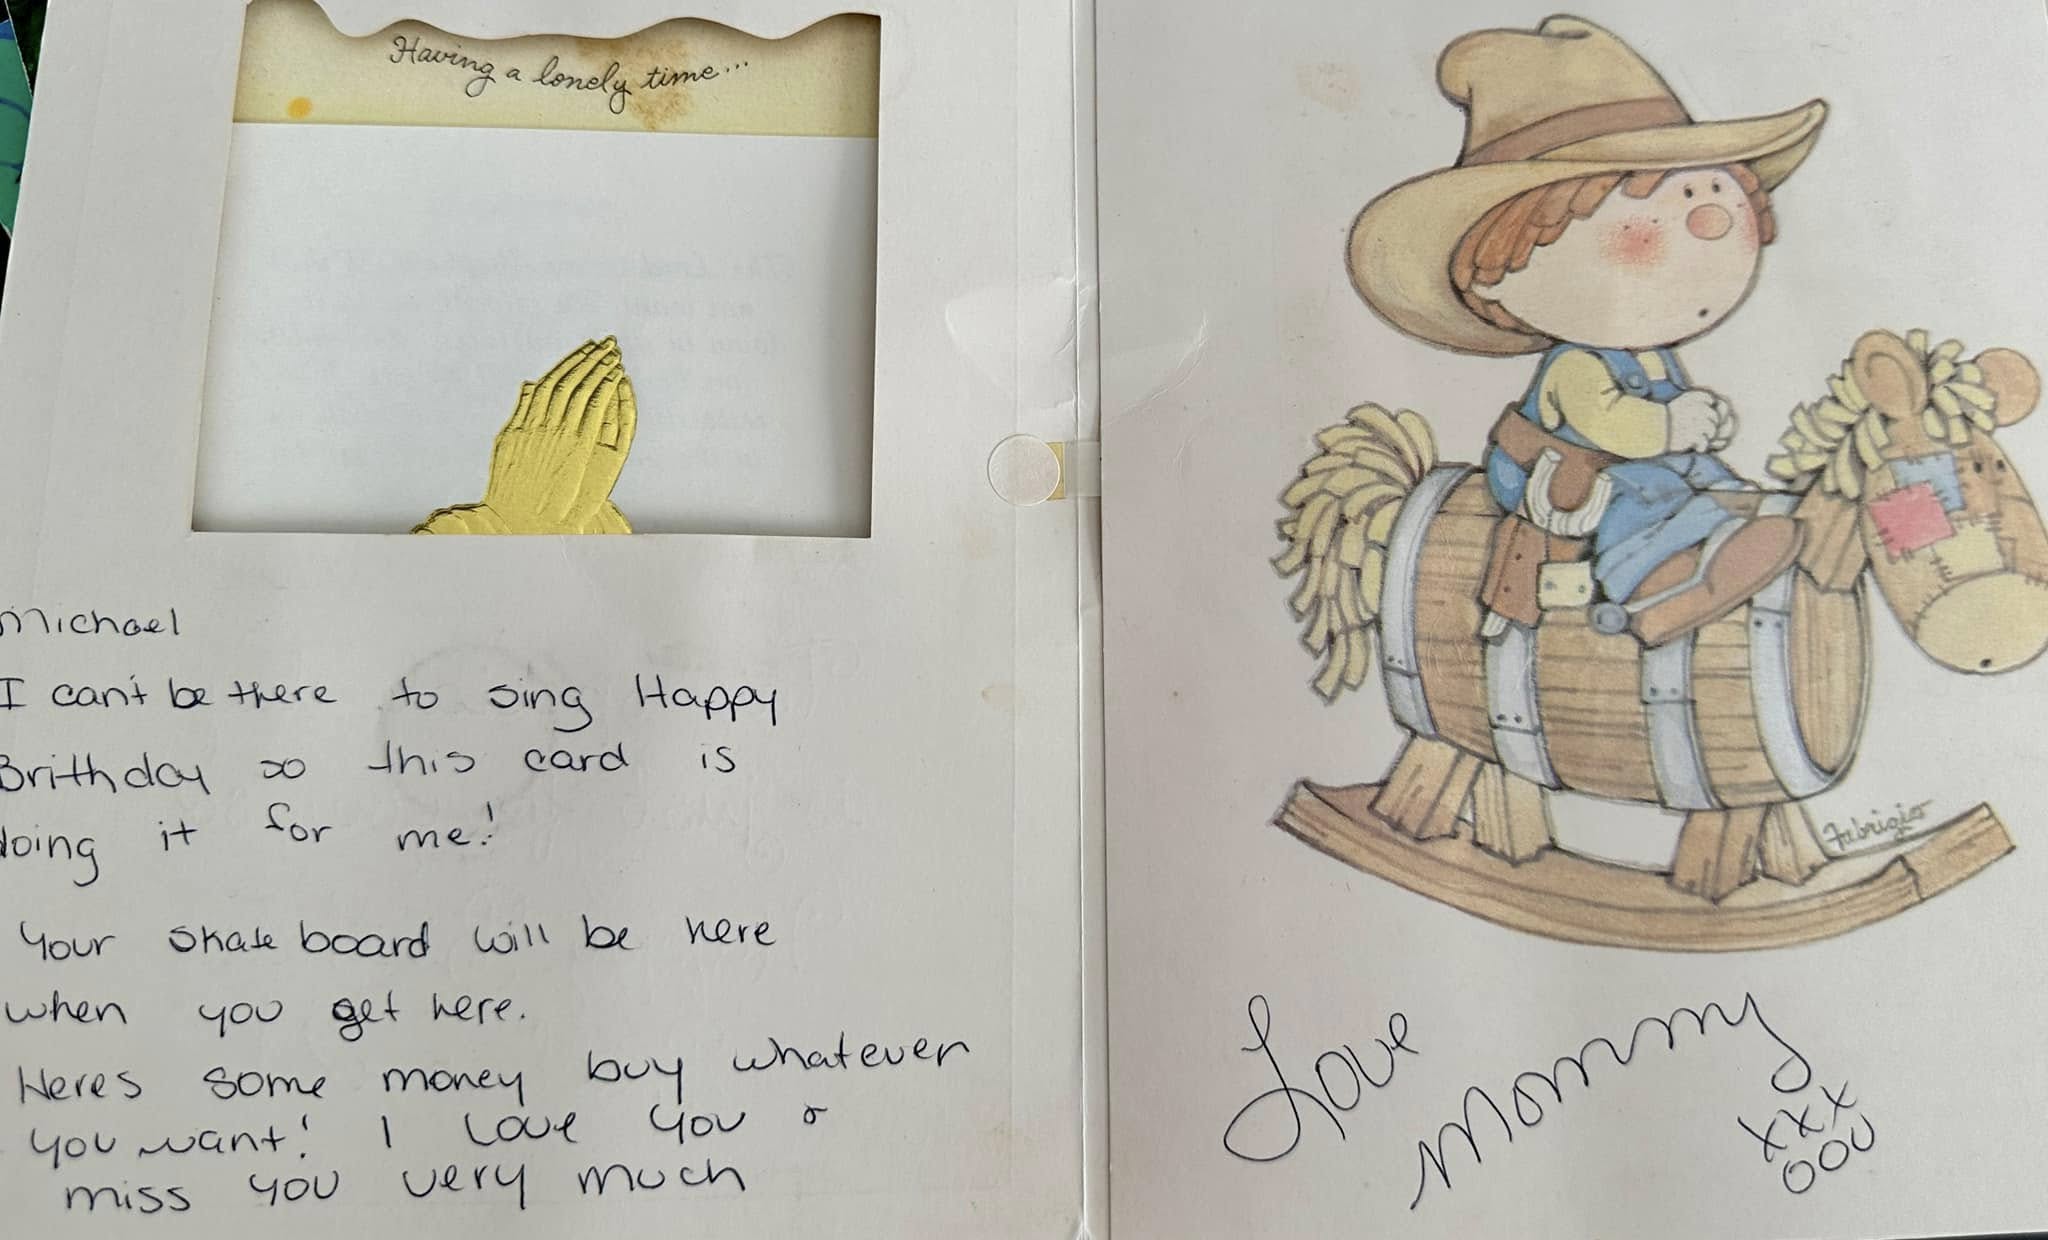 Having a lonely time...
Michael
I can't be there to sing Happy
Brithday so this card is
doing it for me!
Your skate board will be here
when you get here.
Heres some money buy whatever
you want! I Love you &
miss you very much
Fabrizio
Love
Mommy
xxx
ooo